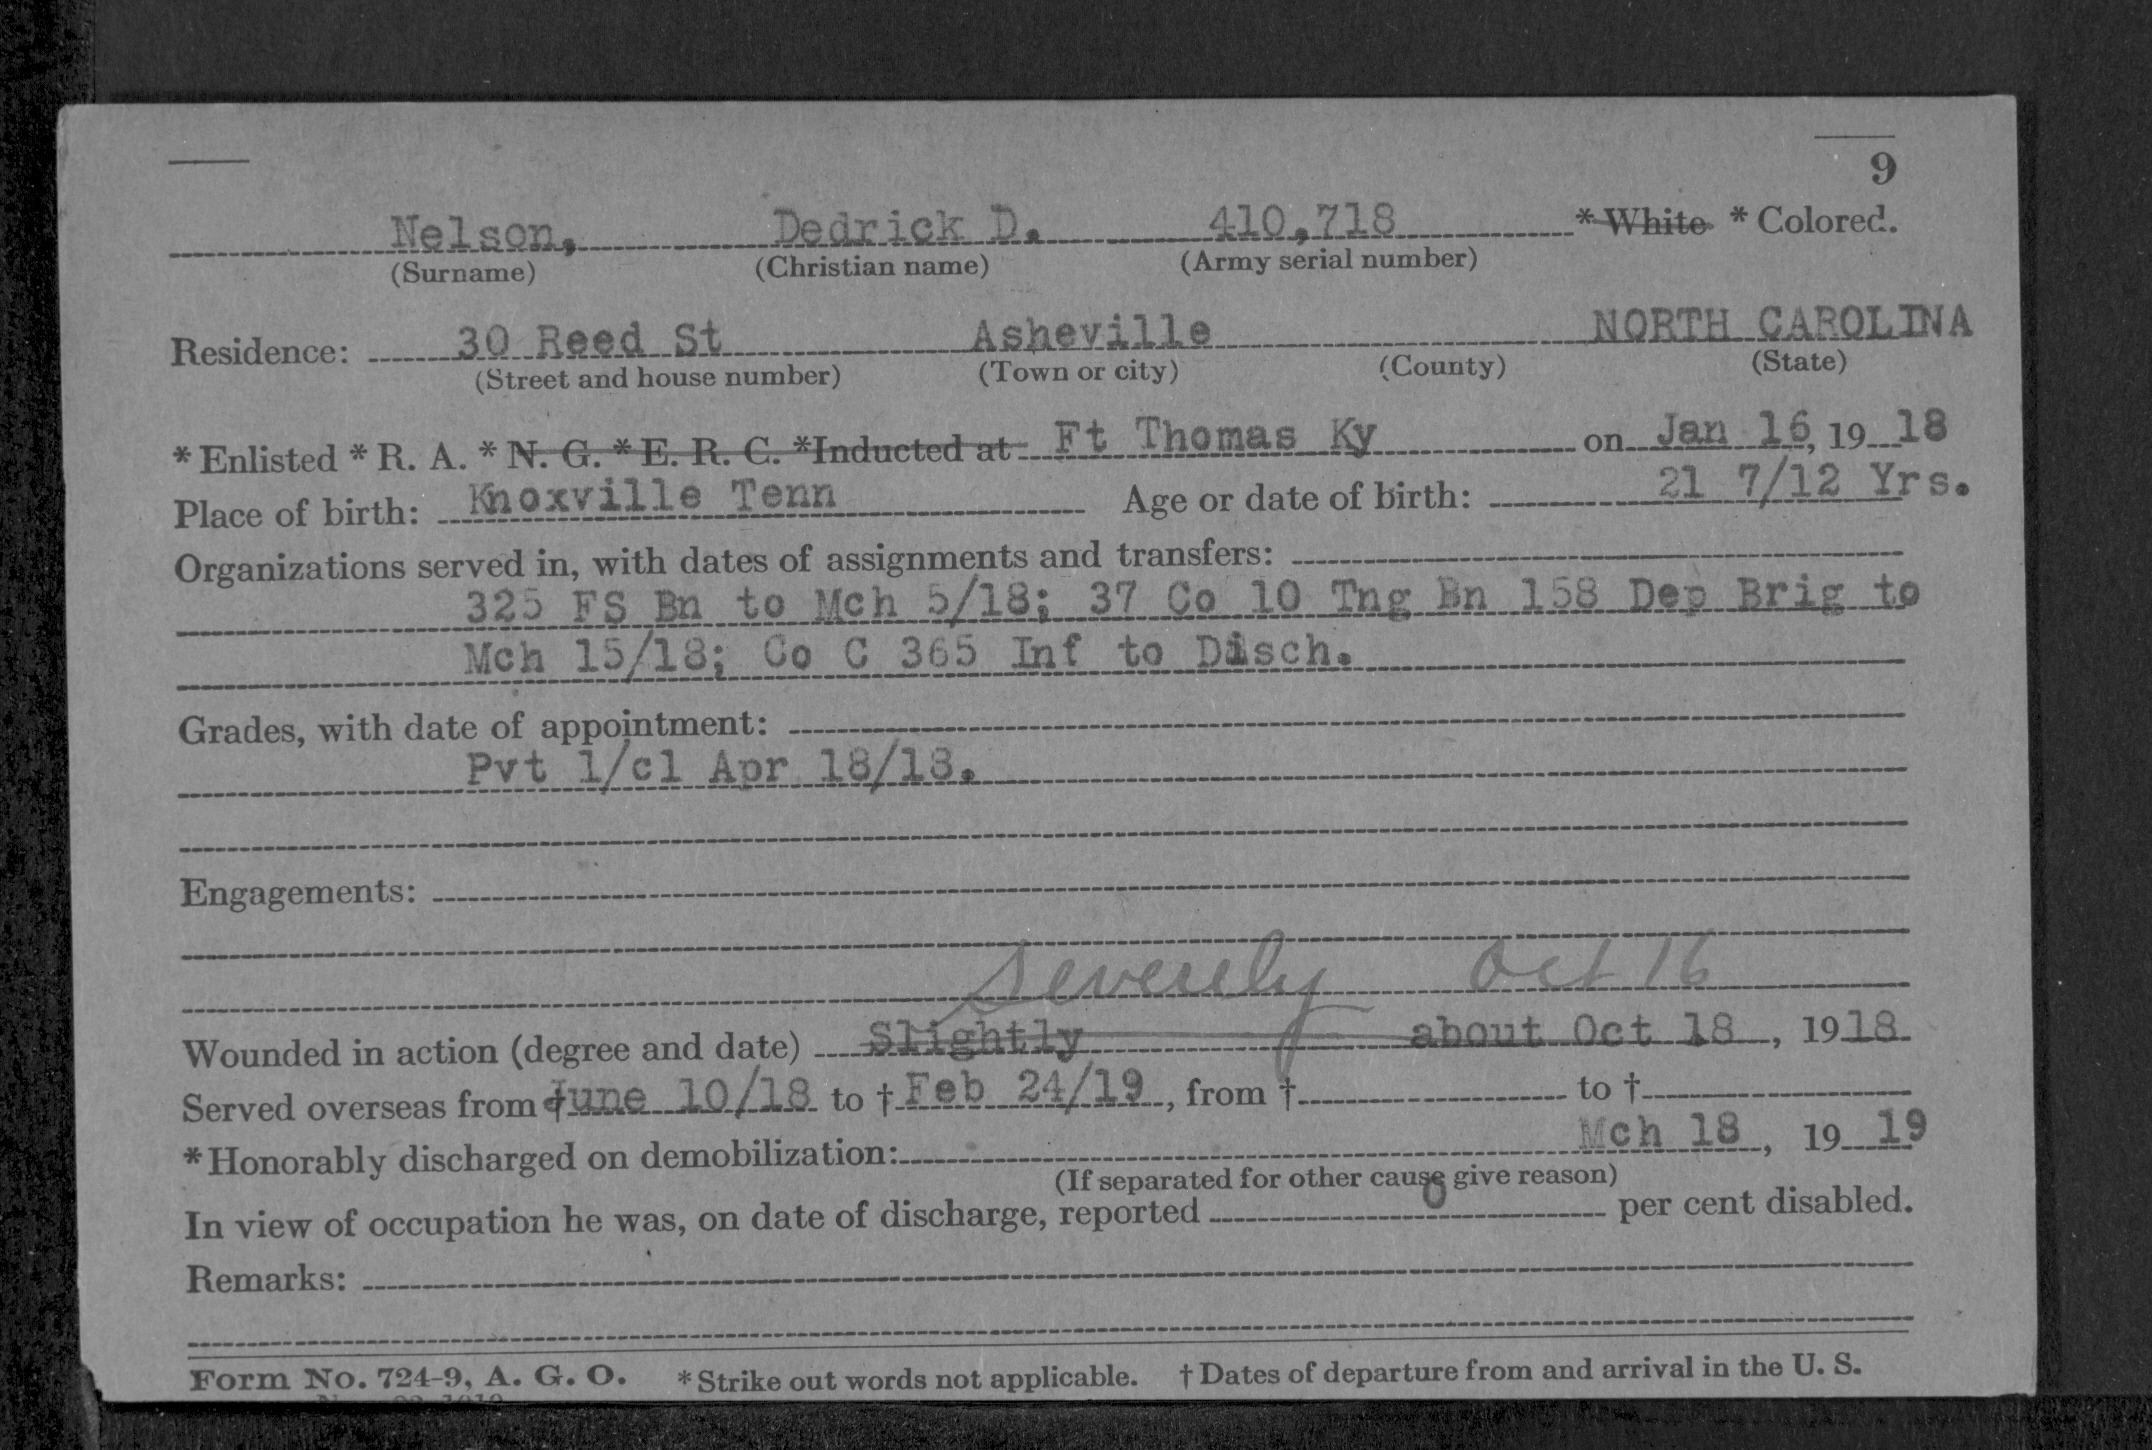 9
Nelson, Dedrick D. 410,718 * White * Colored.
(Surname) (Christian name) (Army serial number)
Residence: 30 Reed St Asheville NORTH CAROLINA
(Street and house number) (Town or city) (County) (State)
* Enlisted * R. A. * N. G. * E. R. C. *Inducted at Ft Thomas Ky on Jan 16, 19 18
Place of birth: Knoxville Tenn Age or date of birth: 21 7/12 Yrs.
Organizations served in, with dates of assignments and transfers:
325 FS Bn to Mch 5/18; 37 Co 10 Tng Bn 158 Dep Brig to
Mch 15/18; Co C 365 Inf to Disch.
Grades, with date of appointment:
Pvt 1/cl Apr 18/18.
Engagements:
severely Oct 16
Wounded in action (degree and date) Slightly about Oct 18, 1918
Served overseas from † June 10/18 to † Feb 24/19, from † to †
*Honorably discharged on demobilization: Mch 18, 19 19
(If separated for other cause give reason)
In view of occupation he was, on date of discharge, reported 0 per cent disabled.
Remarks:
Form No. 724-9, A. G. O. *Strike out words not applicable. † Dates of departure from and arrival in the U. S.